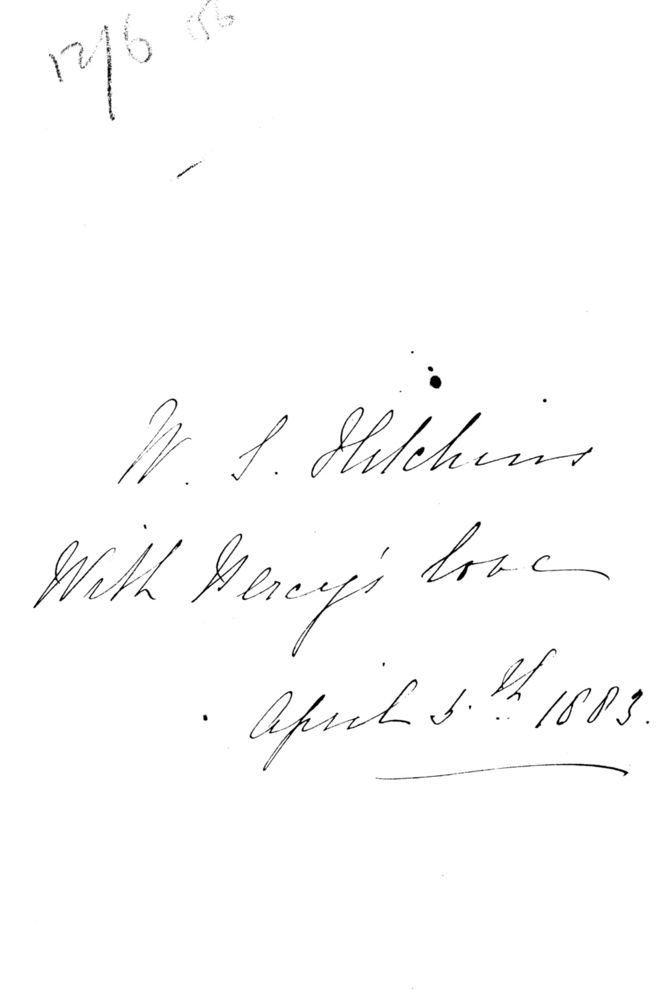 12/6
W. S. Hitchins
With Mercy's love
April 5.th 1883.